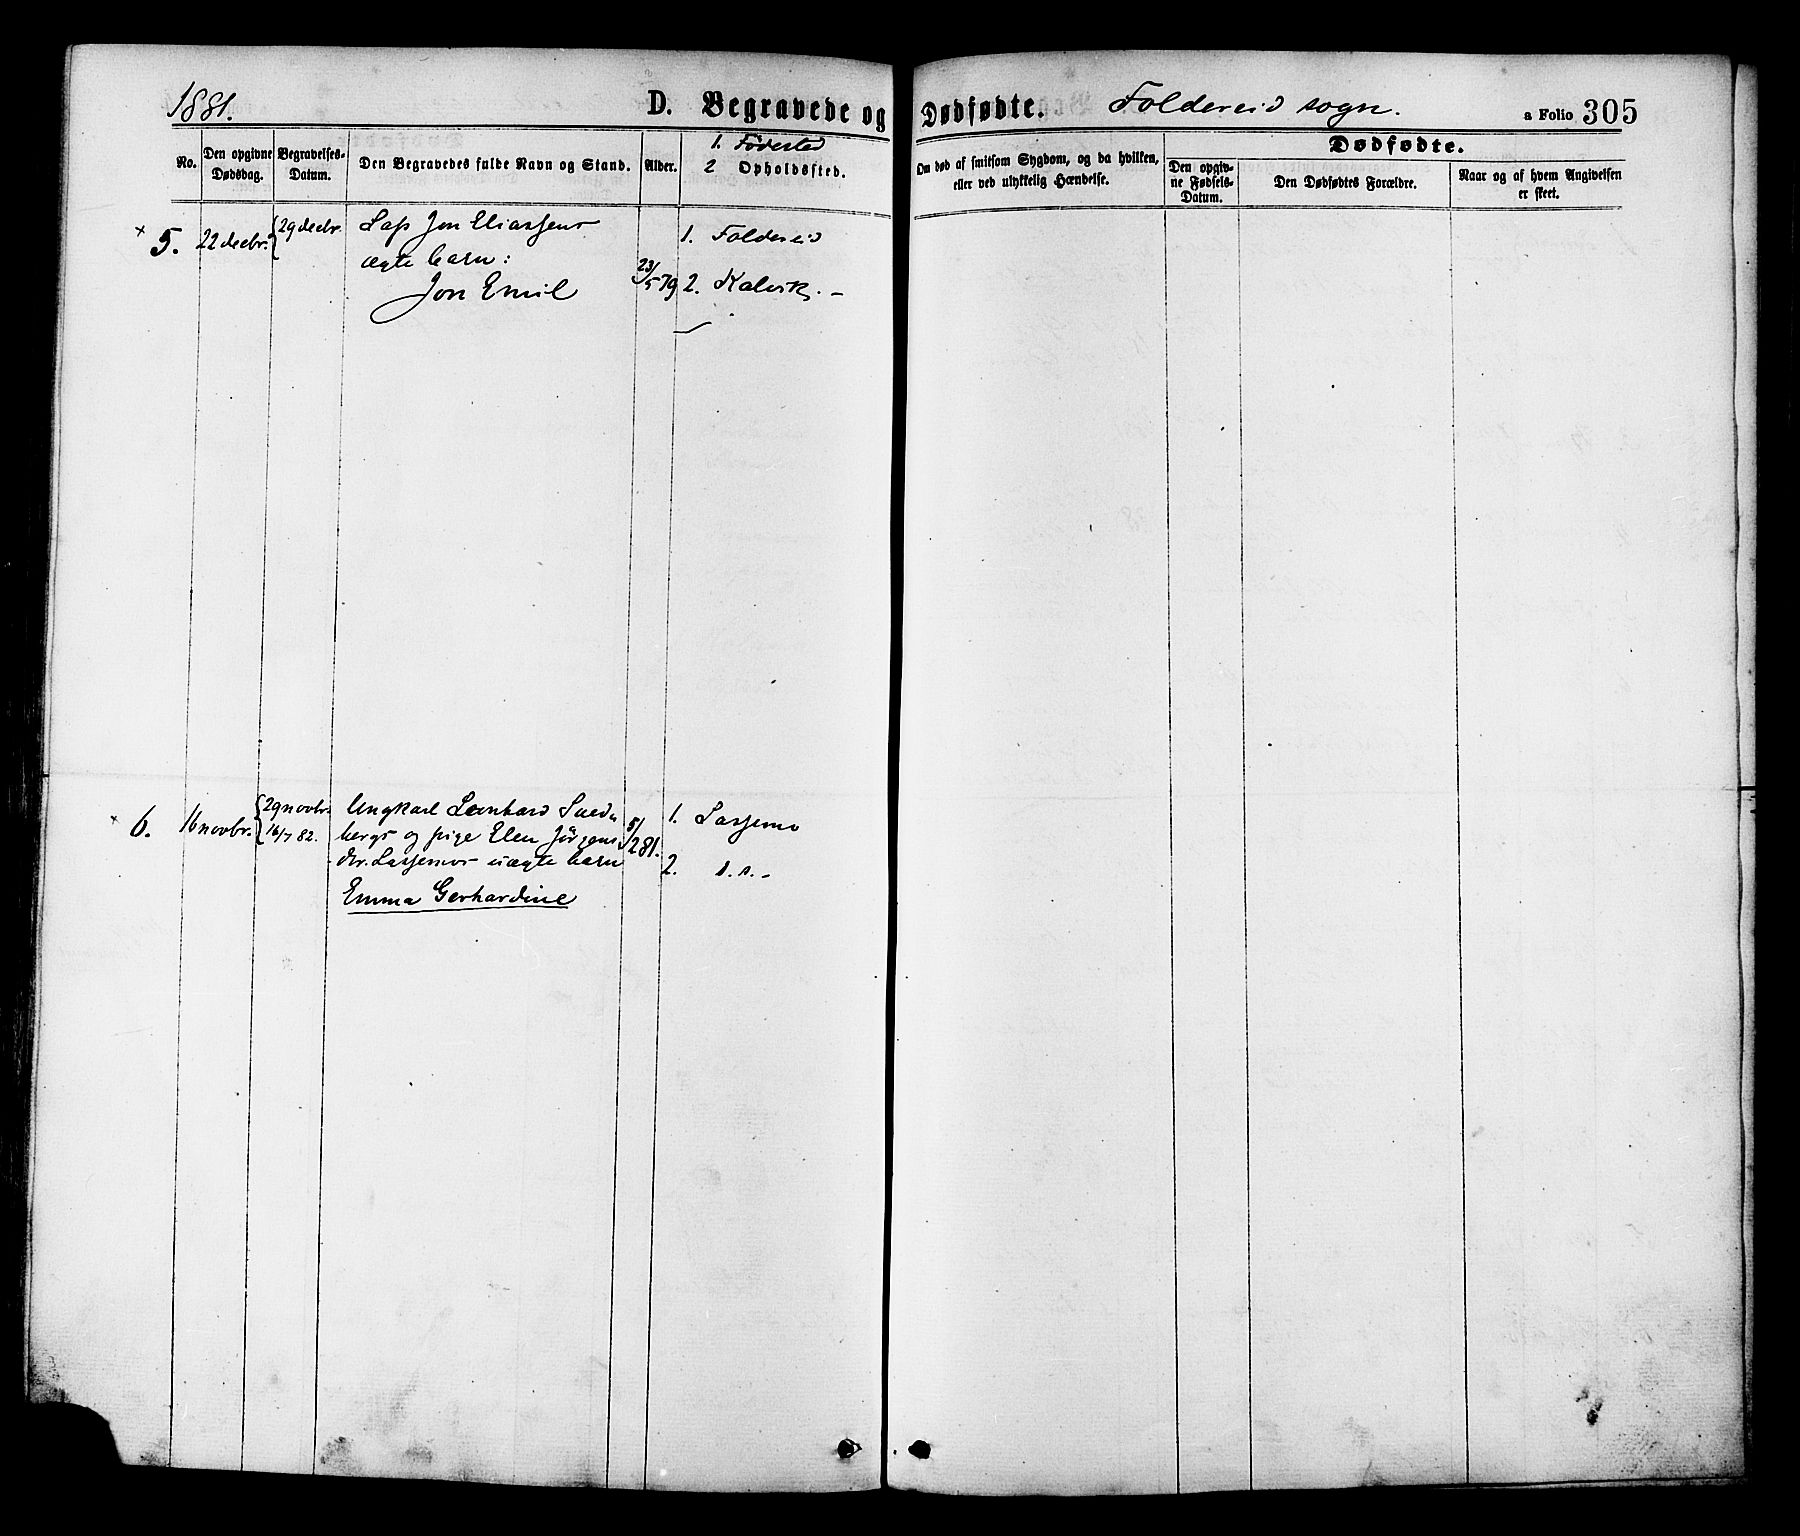 1881.
D. Begravede og Dødfødte. Foldereid sogn. a Folio 305
No.
Den opgivne Dødsdag.
Begravelses-Datum.
Den Begravedes fulde Navn og Stand.
Alder.
1. Fødested
2 Opholdssted.
Om død af smitsom Sygdom, og da hvilken,
eller ved ulykkelig Hændelse.
Dødfødte.
Den opgiv-
ne Fødsels-
Datum.
Den Dødfødtes Forældre.
Naar og af hvem Angivelsen
er skeet.
× 5. 22 decbr. 29 decbr. Lap Jon Eliassens 1. Foldereid
ægte barn:
Jon Emil 23/5 79 2. Kalvik. -
× 6. 16 novbr. 29 novbr. Ungkarl Leonhard 1. Lassemo
16/7 82. bergs og pige Elen Jørgens 5/2 81.
dtr. Lassemos uægte barn 2. d.s. -
Emma Gerhardine